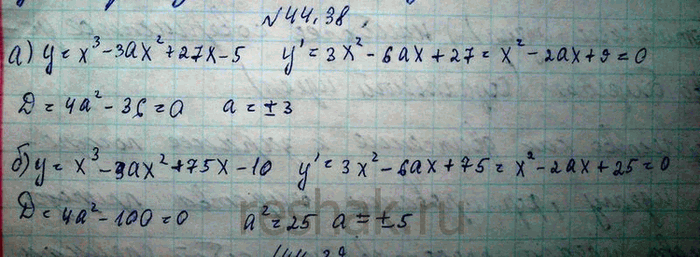 №44.38
а) y = x³ - 3ax² + 27x - 5   y' = 3x² - 6ax + 27 = x² - 2ax + 9 = 0
D = 4a² - 36 = 0   a = ±3
б) y = x³ - 3ax² + 75x - 10   y' = 3x² - 6ax + 75 = x² - 2ax + 25 = 0
D = 4a² - 100 = 0   a² = 25   a = ±5
reshak.ru